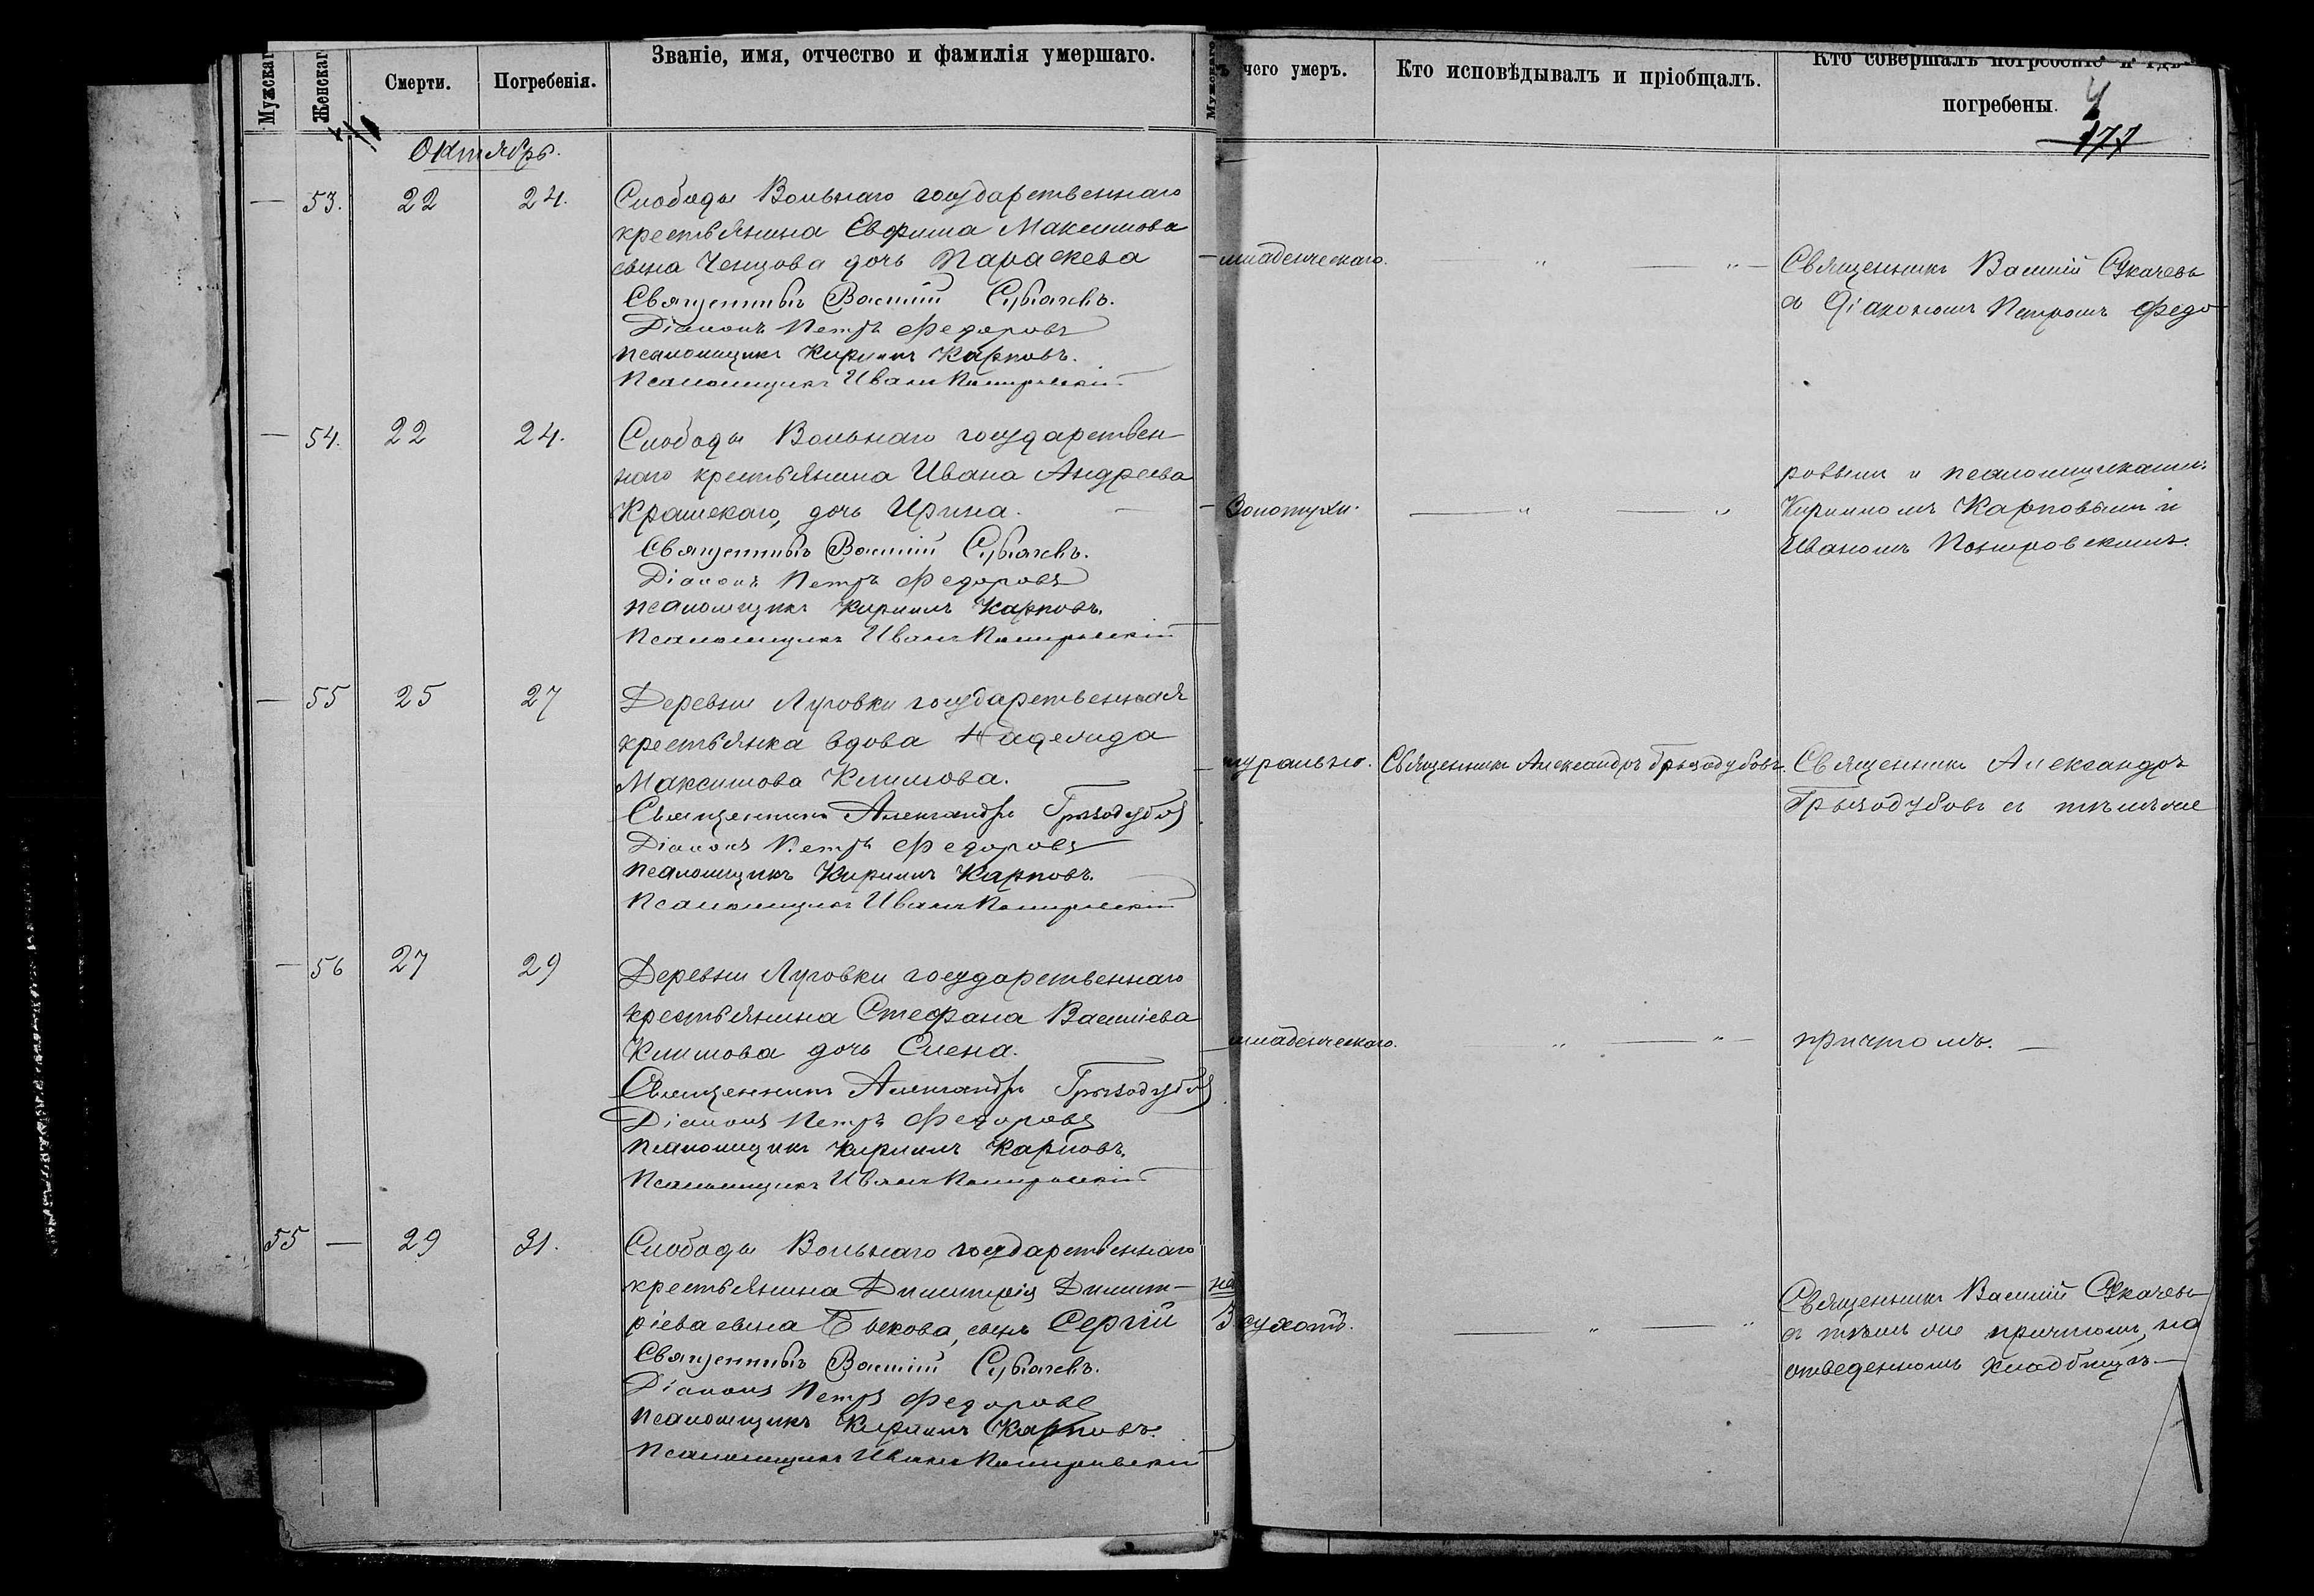 Мужскаг
Женскаг
Смерти.
Погребенія.
Званіе, имя, отчество и фамилія умершаго.
Мужскаго
чего умеръ.
Кто исповѣдывалъ и пріобщалъ.
Кто совершалъ погребеніе и гдѣ
погребены.
4
177
Октябрь.
— 53. 22 24.
Слободы Вольнаго государственнаго
крестьянина Евфима Максимова
сына Ченцова дочь Параскева
Священникъ Василій
Діаконъ Петръ Федоровъ
Псаломщикъ Кириллъ Карповъ.
Псаломщикъ Иванъ
младенческаго.
Священникъ Василій
съ Діакономъ Петромъ Федо
— 54. 22 24.
Слободы Вольнаго государствен-
наго крестьянина Ивана Андреева
Крамскаго, дочь Ирина.
Священникъ Василій
Діаконъ Петръ Федоровъ
Псаломщикъ Кириллъ Карповъ.
Псаломщикъ Иванъ
Золотухи.
ровымъ и псаломщиками:
Кирилломъ Карповымъ и
Иваномъ
— 55 25 27
Деревни Луговки государственная
крестьянка вдова Надежда
Максимова Климова.
Священникъ Александръ Грызодубовъ
Діаконъ Петръ Федоровъ
Псаломщикъ Кириллъ Карповъ.
Псаломщикъ Иванъ
турально.
Священникъ Александръ Грызодубовъ.
Священникъ Александръ
Грызодубовъ съ тѣмъ же
— 56 27 29
Деревни Луговки государственнаго
крестьянина Стефана Василіева
Климова дочь Елена.
Священникъ Александръ Грызодубовъ
Діаконъ Петръ Федоровъ
Псаломщикъ Кириллъ Карповъ.
Псаломщикъ Иванъ
младенческаго.
причтомъ. —
55 — 29 31.
Слободы Вольнаго государственнаго
крестьянина Димитрія Димит-
ріева сына Бекова, сынъ Сергій
Священникъ Василій
Діаконъ Петръ Федоровъ
Псаломщикъ Кириллъ Карповъ.
Псаломщикъ Иванъ
сухоты.
Священникъ Василій
съ тѣмъ же причтомъ, на
отведенномъ кладбищѣ. —